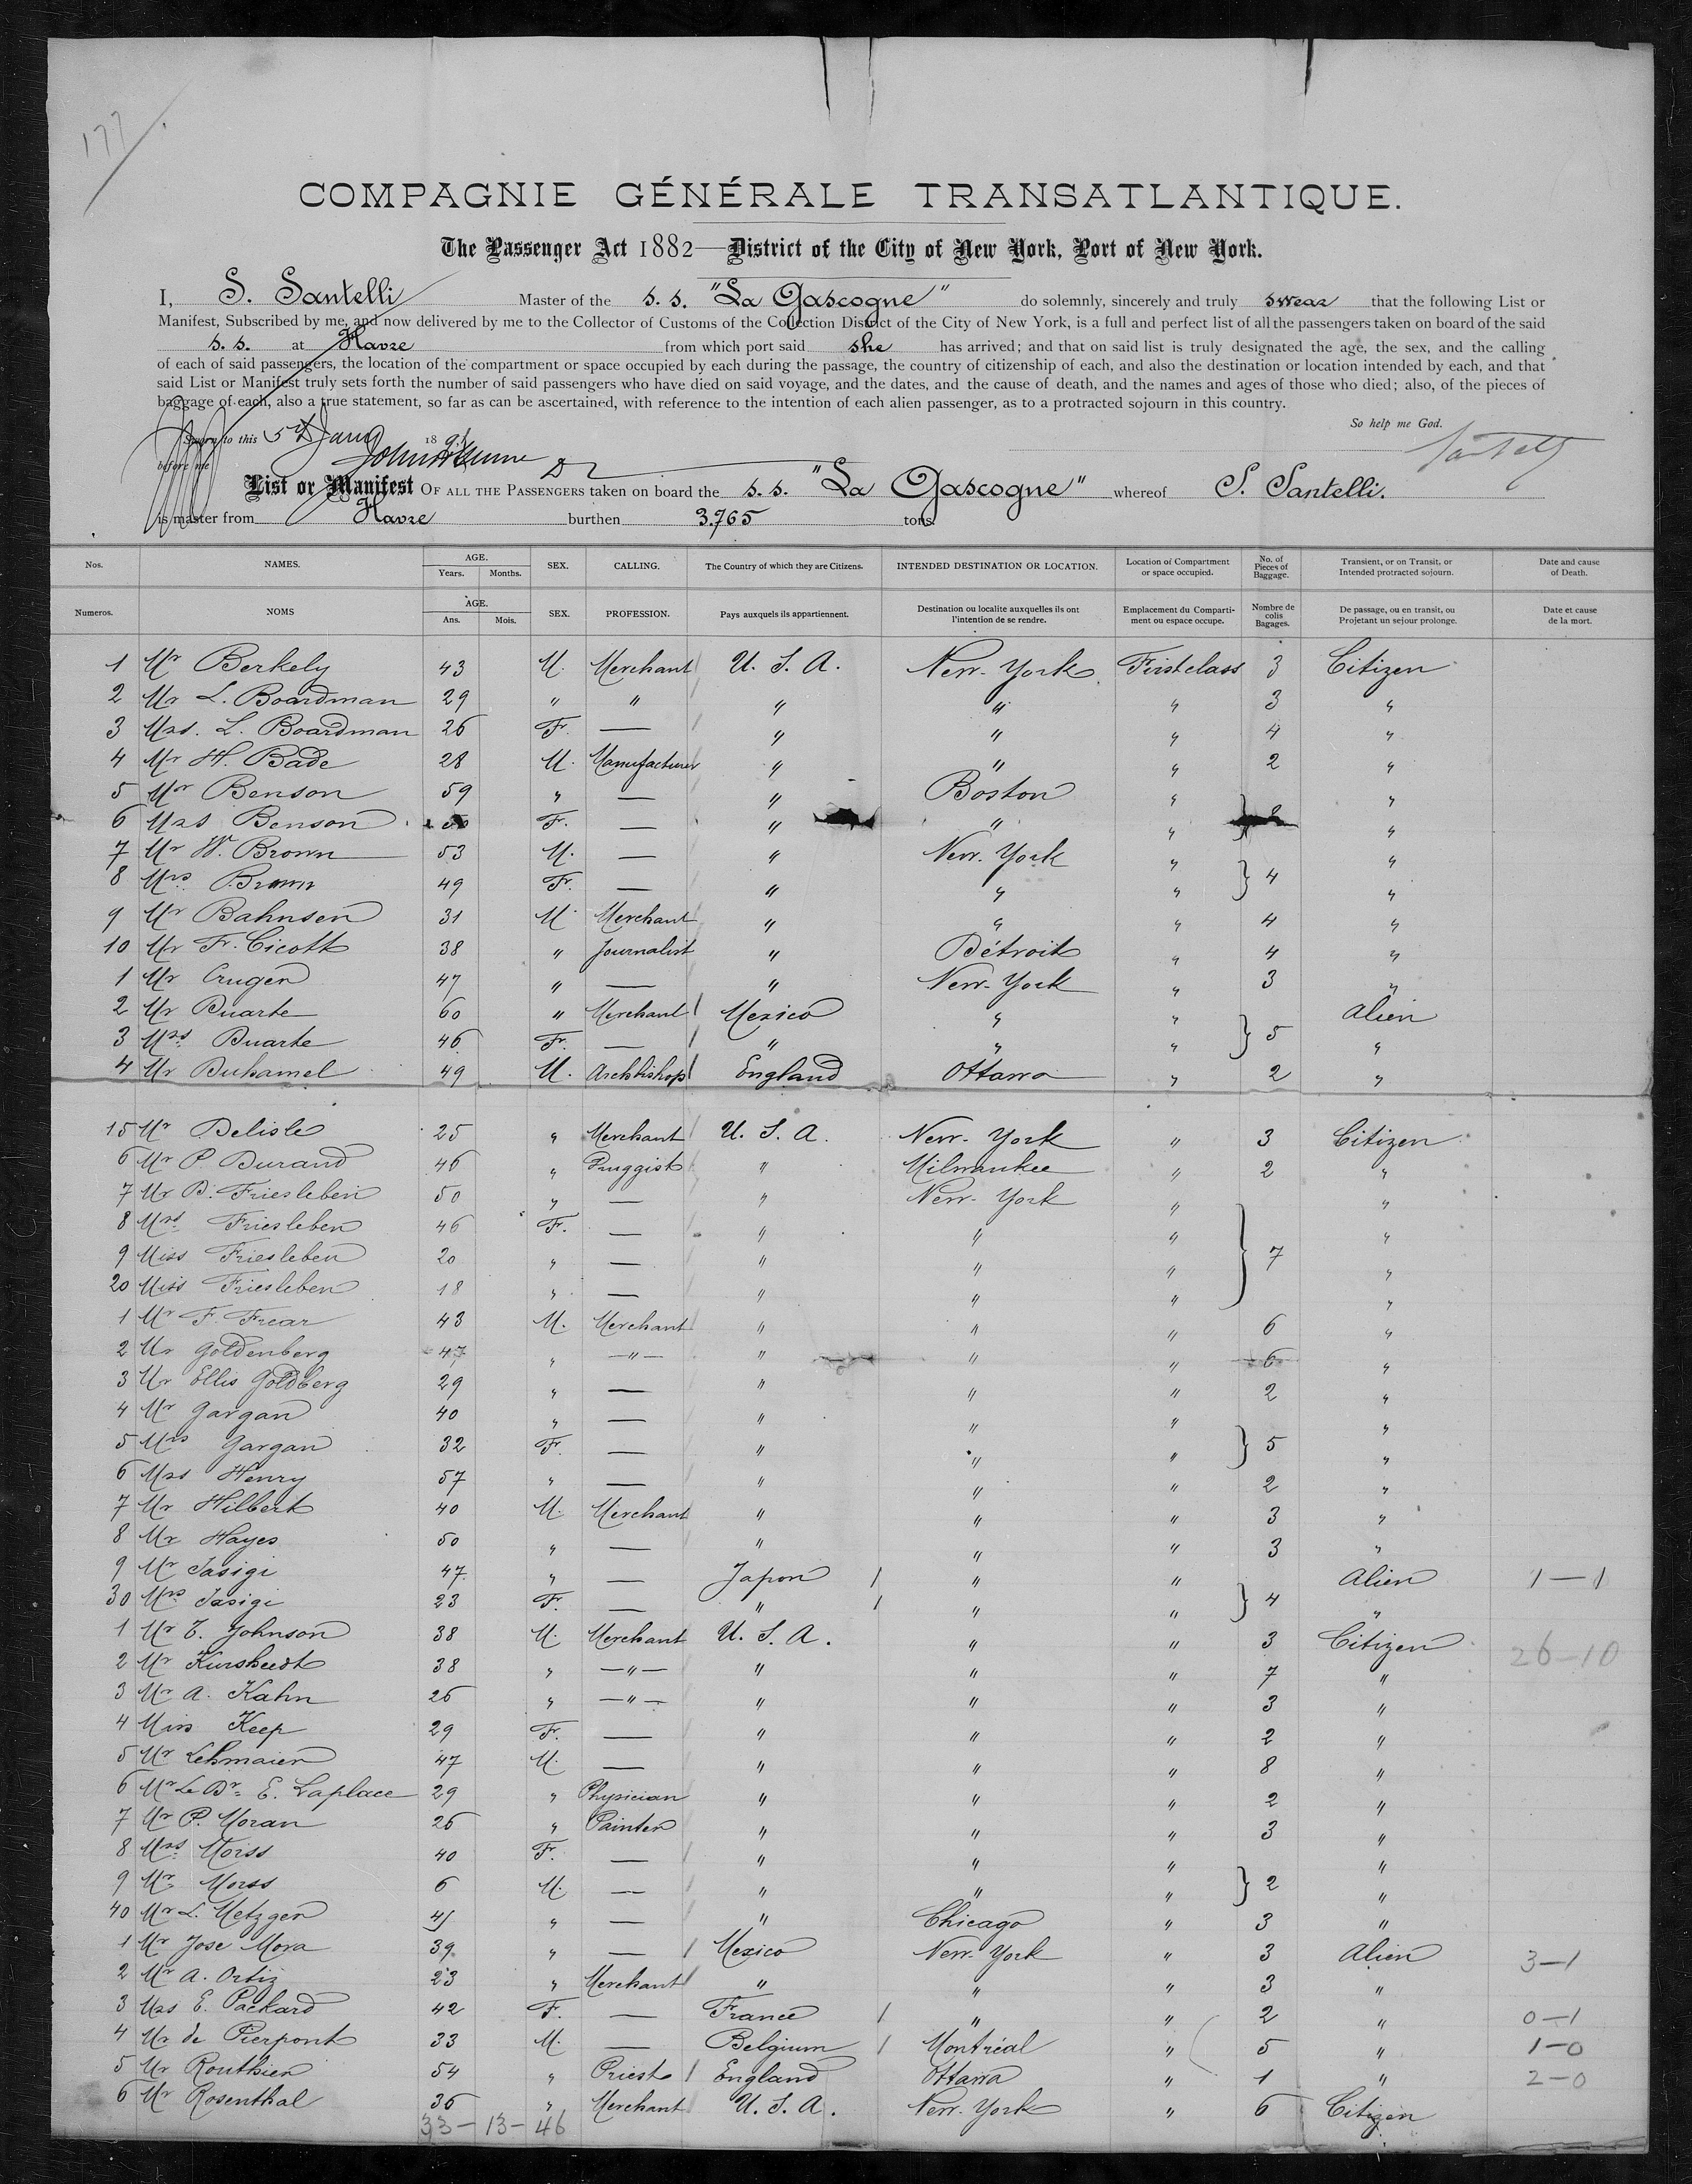 177
COMPAGNIE GÉNÉRALE TRANSATLANTIQUE.
The Passenger Act 1882—District of the City of New York, Port of New York.
I, S. Santelli Master of the s. s. "La Gascogne" do solemnly, sincerely and truly swear that the following List or
Manifest, Subscribed by me, and now delivered by me to the Collector of Customs of the Collection District of the City of New York, is a full and perfect list of all the passengers taken on board of the said
s. s. at Havre from which port said she has arrived; and that on said list is truly designated the age, the sex, and the calling
of each of said passengers, the location of the compartment or space occupied by each during the passage, the country of citizenship of each, and also the destination or location intended by each, and that
said List or Manifest truly sets forth the number of said passengers who have died on said voyage, and the dates, and the cause of death, and the names and ages of those who died; also, of the pieces of
baggage of each, also a true statement, so far as can be ascertained, with reference to the intention of each alien passenger, as to a protracted sojourn in this country.
So help me God.
Sworn to this 5th Jany 1891
before me
Santelli
List or Manifest OF ALL THE PASSENGERS taken on board the s. s. "La Gascogne" whereof S. Santelli.
is master from Havre burthen 3.765 tons.
Nos. NAMES. AGE. Years. Months. SEX. CALLING. The Country of which they are Citizens. INTENDED DESTINATION OR LOCATION. Location of Compartment or space occupied. No. of Pieces of Baggage. Transient, or on Transit, or Intended protracted sojourn. Date and cause of Death.
Numeros. NOMS AGE. Ans. Mois. SEX. PROFESSION. Pays auxquels ils appartiennent. Destination ou localite auxquelles ils ont l'intention de se rendre. Emplacement du Compartiment ou espace occupe. Nombre de colis Bagages. De passage, ou en transit, ou Projetant un sejour prolonge. Date et cause de la mort.
1 Mr Berkely 43 M. Merchant U. S. A. New-York First class 3 Citizen
2 Mr L. Boardman 29 " " " " " 3 "
3 Mrs. L. Boardman 26 F. — " " " 4 "
4 Mr H. Bade 28 M. Manufacturer " " " 2 "
5 Mr Benson 59 " — " Boston " "
6 Mrs Benson 50 F. — " " " } 2 "
7 Mr W. Brown 53 M. — " New-York " "
8 Mrs Brown 49 F. — " " " } 4 "
9 Mr Bahnsen 31 M. Merchant " " " 4 "
10 Mr Fr. Cicott 38 " Journalist " Détroit " 4 "
1 Mr Cruger 47 " — " New-York " 3 "
2 Mr Duarte 60 " Merchant Mexico " " Alien
3 Mrs Duarte 46 F. — " " " } 5 "
4 Mr Duhamel 49 M. Archbishop England Ottawa " 2 "
15 Mr Delisle 25 " Merchant U. S. A. New-York " 3 Citizen
6 Mr P. Durand 46 " Druggist " Milwaukee " 2 "
7 Mr B. Friesleben 50 " — " New-York " "
8 Mrs Friesleben 46 F. — " " " "
9 Miss Friesleben 20 " — " " " } 7 "
20 Miss Friesleben 18 " — " " " "
1 Mr F. Frear 43 M. Merchant " " " 6 "
2 Mr Goldenberg 47 " —"— " " " 6 "
3 Mr Ellis Goldberg 29 " — " " " 2 "
4 Mr Gargan 40 " — " " " "
5 Mrs Gargan 32 F. — " " " } 5 "
6 Mrs Henry 57 " — " " " 2 "
7 Mr Hilbert 40 M. Merchant " " " 3 "
8 Mr Hayes 50 " — " " " 3 "
9 Mr Iasigi 47 " — Japon " " Alien 1—1
30 Mrs Iasigi 23 F. — " " " } 4 "
1 Mr E. Johnson 38 M. Merchant U. S. A. " " 3 Citizen 26—10
2 Mr Kursheedt 38 " —"— " " " 7 "
3 Mr A. Kahn 26 " —"— " " " 3 "
4 Miss Keep 29 F. — " " " 2 "
5 Mr Lehmaier 47 M. — " " " 8 "
6 Mr Le Dr. E. Laplace 29 " Physician " " " 2 "
7 Mr P. Moran 26 " Painter " " " 3 "
8 Mrs Morss 40 F. — " " " "
9 Mr Morss 6 M. — " " " } 2 "
40 Mr L. Metzger 45 " — " Chicago " 3 "
1 Mr Jose Mora 39 " — Mexico New-York " 3 Alien 3—1
2 Mr A. Ortiz 23 " Merchant " " " 3 "
3 Mrs E. Packard 42 F. — France " " 2 " 0—1
4 Mr de Pierpont 33 M. — Belgium Montréal " 5 " 1—0
5 Mr Routhier 54 " Priest England Ottawa " 1 " 2—0
6 Mr Rosenthal 36 " Merchant U. S. A. New-York " 6 Citizen
33—13—46